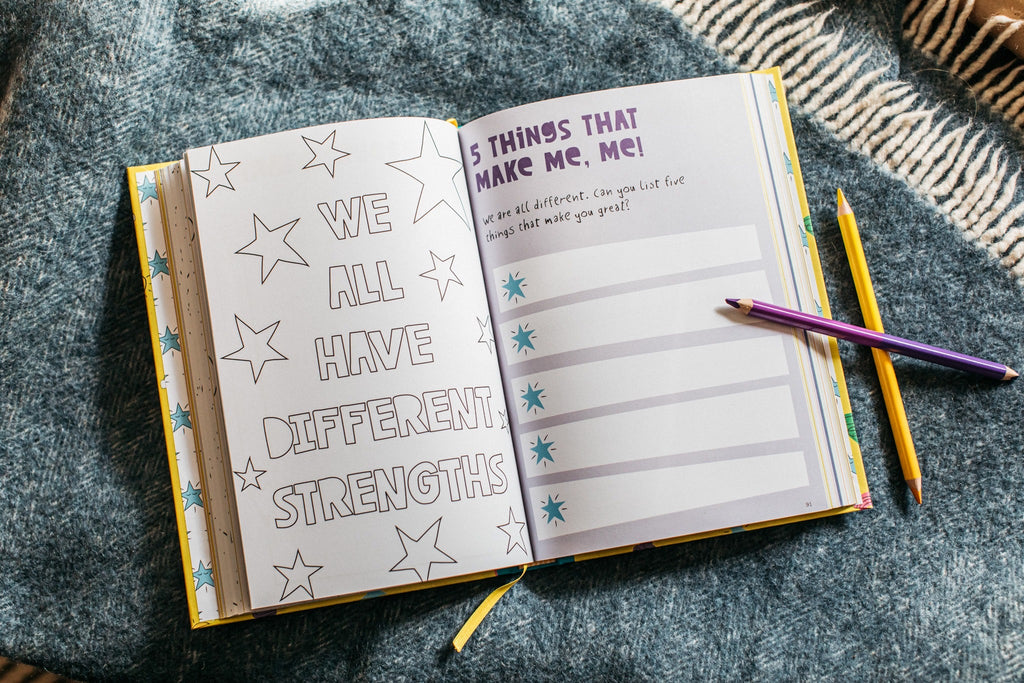 WE
ALL
HAVE
DIFFERENT
STRENGTHS
5 THiNGS THAT
MAKE ME, ME!
We are all different. Can you list five
things that make you great?
91